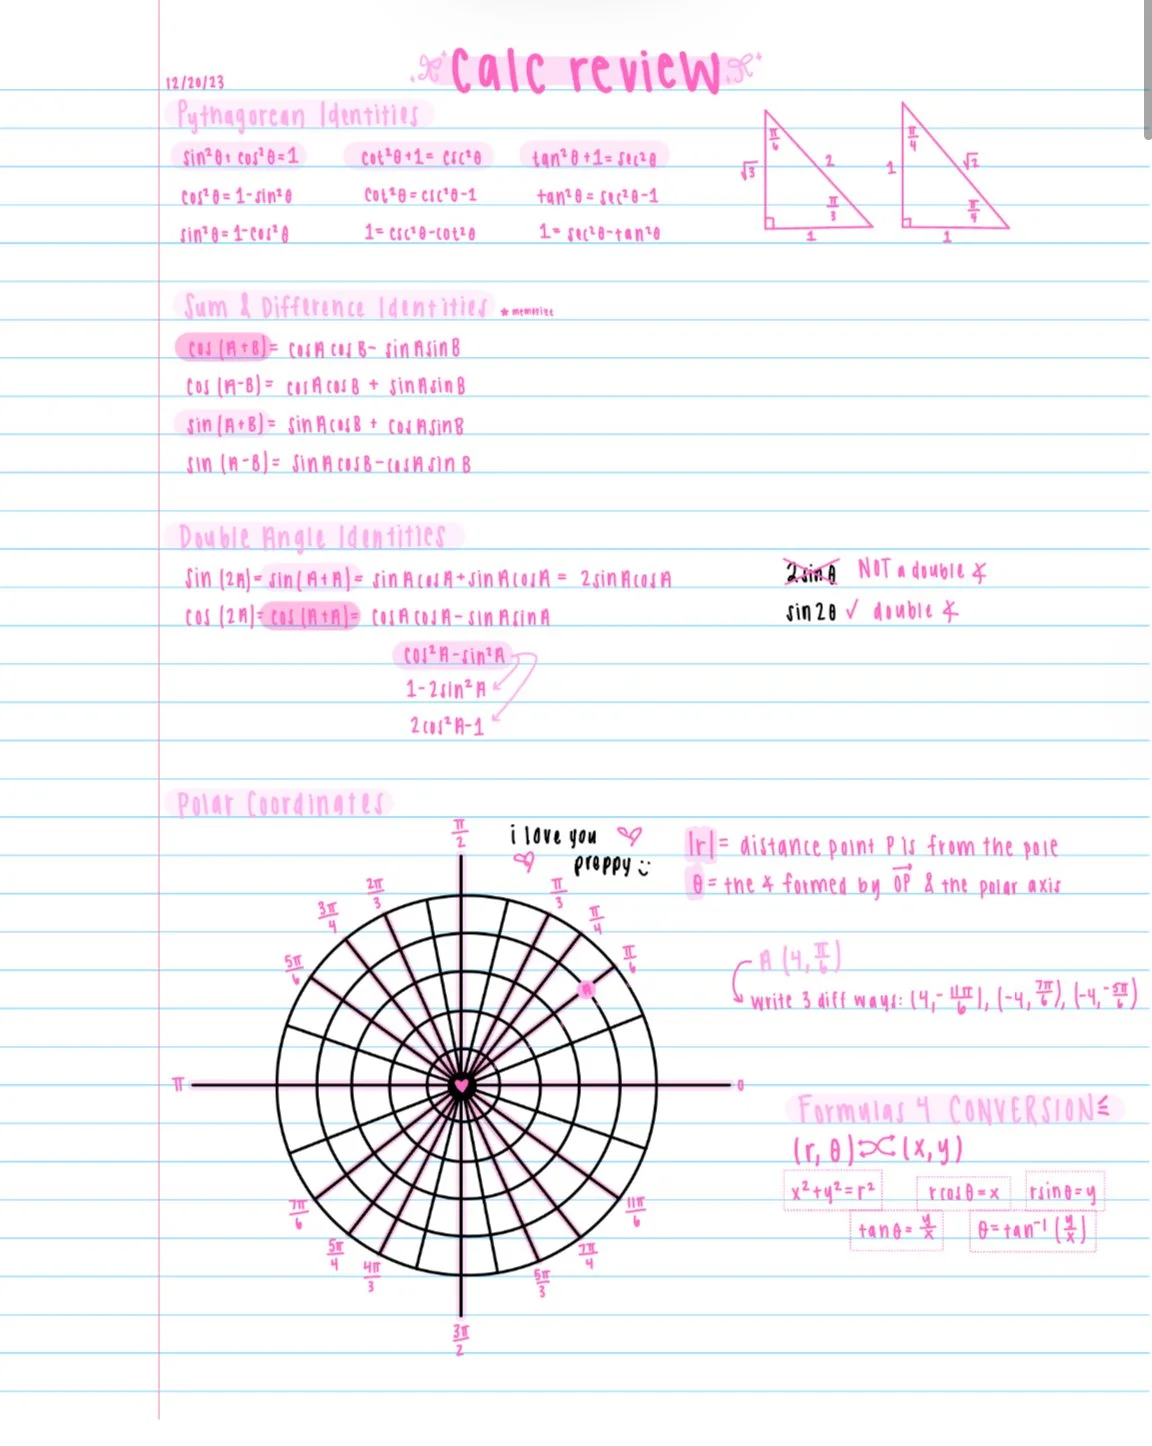 calc review
12/20/23
Pythagorean Identities
sin²θ + cos²θ = 1 cot²θ + 1 = csc²θ tan²θ + 1 = sec²θ
cos²θ = 1 - sin²θ cot²θ = csc²θ - 1 tan²θ = sec²θ - 1
sin²θ = 1 - cos²θ 1 = csc²θ - cot²θ 1 = sec²θ - tan²θ
π/6 √3 2 π/3 1
π/4 1 √2 π/4 1
Sum & Difference Identities * memorize
cos (A+B) = cosA cosB - sinAsinB
cos (A-B) = cosAcosB + sinAsinB
sin (A+B) = sinAcosB + cosAsinB
sin (A-B) = sinAcosB - cosAsinB
Double Angle Identities
sin (2A) = sin(A+A) = sinAcosA + sinAcosA = 2sinAcosA
cos (2A) = cos (A+A) = cosAcosA - sinAsinA
cos²A - sin²A
1 - 2sin²A
2cos²A - 1
2sinθ NOT a double ∡
sin2θ ✓ double ∡
Polar Coordinates
i love you
preppy :)
|r| = distance point P is from the pole
θ = the ∡ formed by OP & the polar axis
A (4, π/6)
write 3 diff ways: (4, -11π/6), (-4, 7π/6), (-4, -5π/6)
π/2
2π/3 π/3
3π/4 π/4
5π/6 π/6
A
π 0
7π/6 11π/6
5π/4 7π/4
4π/3 5π/3
3π/2
Formulas 4 CONVERSION
(r, θ) (x, y)
x² + y² = r² rcosθ = x rsinθ = y
tanθ = y/x θ = tan⁻¹ (y/x)